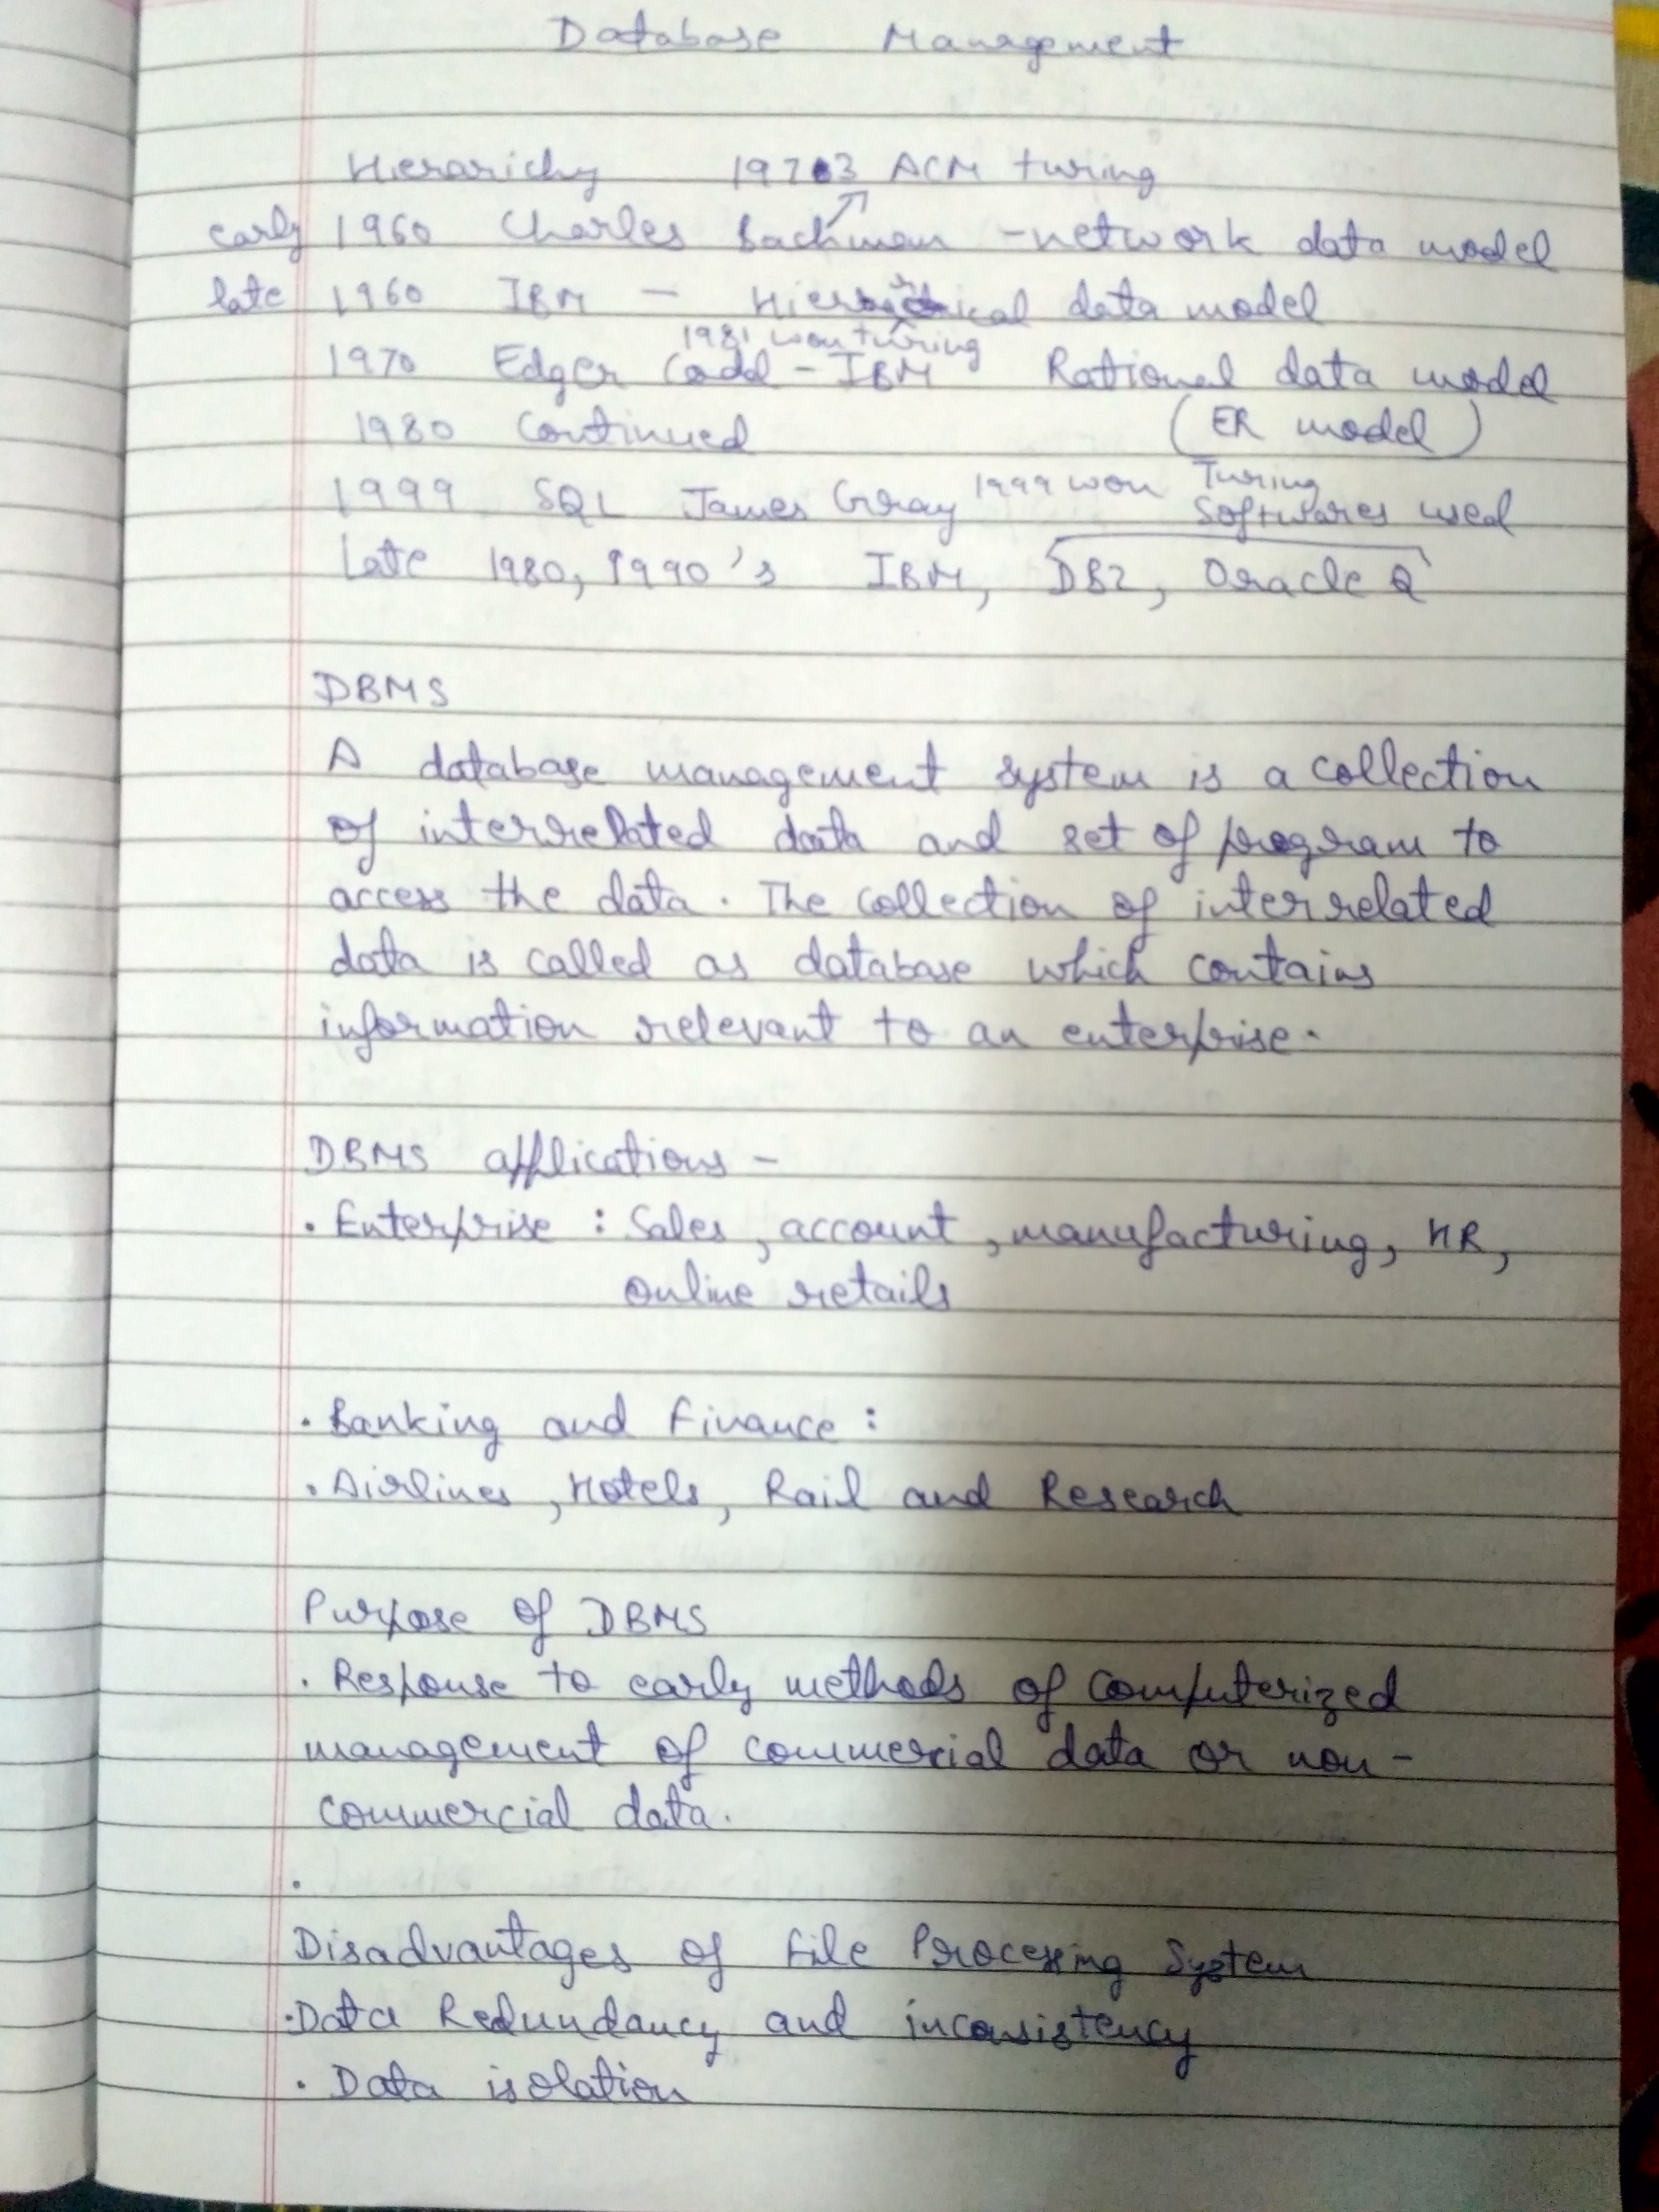 Database Management
Hierarichy 1973 ACM turing
early 1960 Charles Bachman - network data model
late 1960 IBM - Hierarical data model
1981 won turing
1970 Edger Codd - IBM Rational data model
1980 Continued (ER model)
1999 SQL James Gray 1999 won Turing
Softwares used
Late 1980, 1990's IBM, DB2, Oracle
DBMS
A database management system is a collection
of interrelated data and set of program to
access the data. The collection of interrelated
data is called as database which contains
information relevant to an enterprise.
DBMS applications -
• Enterprise : Sales, account, manufacturing, HR,
online retails
• Banking and Finance :
• Airlines, Hotels, Rail and Research
Purpose of DBMS
• Response to early methods of computerized
management of commercial data or non-
commercial data.
•
Disadvantages of File Processing System
• Data Redundancy and inconsistency
• Data isolation